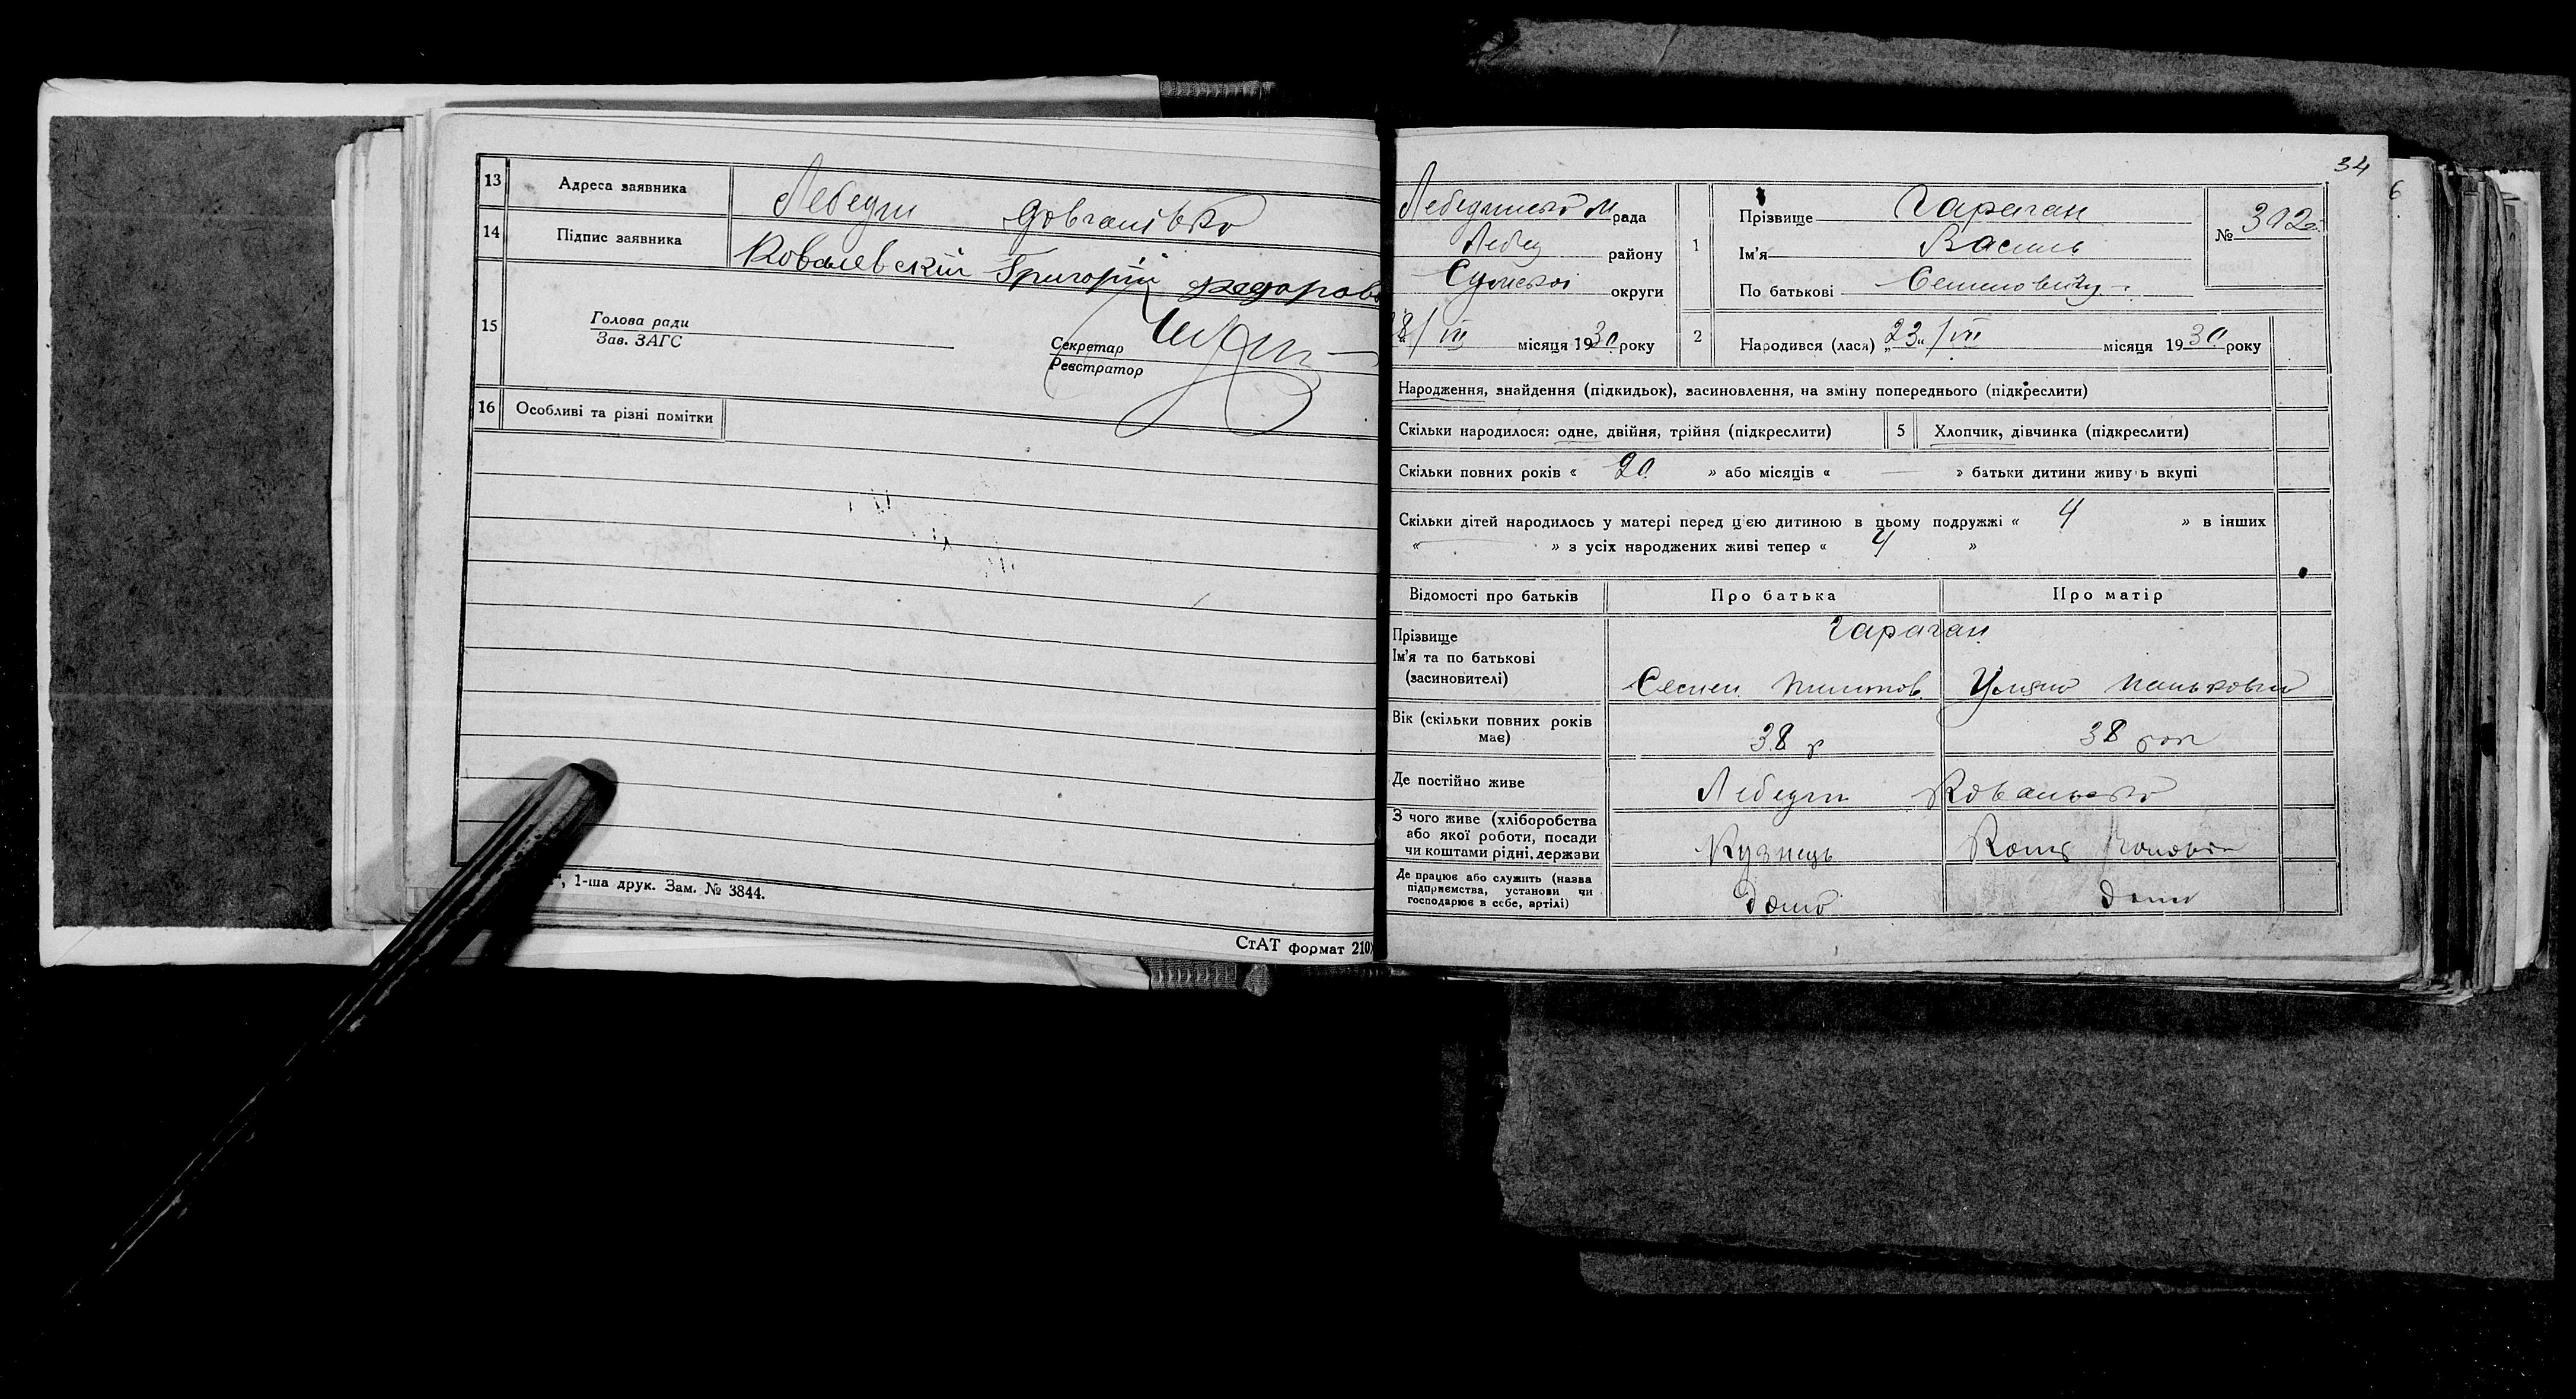 13 Адреса заявника Лебедин Довганівка
14 Підпис заявника Ковалевскій Григорій Федоров
15 Голова ради
Зав. ЗАГС
Секретар
Реєстратор
16 Особливі та різні помітки
1-ша друк. Зам. № 3844.
СтАТ формат 210
34
6
Лебединська м рада
Лебед району
Сумської округи
28/VII місяця 1930 року
1 Прізвище Гараган
Ім'я Василь
По батькові Семенович
№ 302
2 Народився (лася) „23„ /VII місяця 1930 року
Народження, знайдення (підкидьок), засиновлення, на зміну попереднього (підкреслити)
Скільки народилося: одне, двійня, трійня (підкреслити) 5 Хлопчик, дівчинка (підкреслити)
Скільки повних років « 20 » або місяців « — » батьки дитини живуь вкупі
Скільки дітей народилось у матері перед цією дитиною в цьому подружжі « 4 » в інших
« — » з усіх народжених живі тепер « 4 »
Відомості про батьків Про батька Про матір
Прізвище
Ім'я та по батькові
(засиновителі)
Гараган
Семен Уляна Паньковна
Вік (скільки повних років
має)
38 р 38 рок
Де постійно живе Лебедин
З чого живе (хліборобства
або якої роботи, посади
чи коштами рідні, держави
Кузнець
Де працює або служить (назва
підприємства, установи чи
господарює в себе, артілі)
дома дома